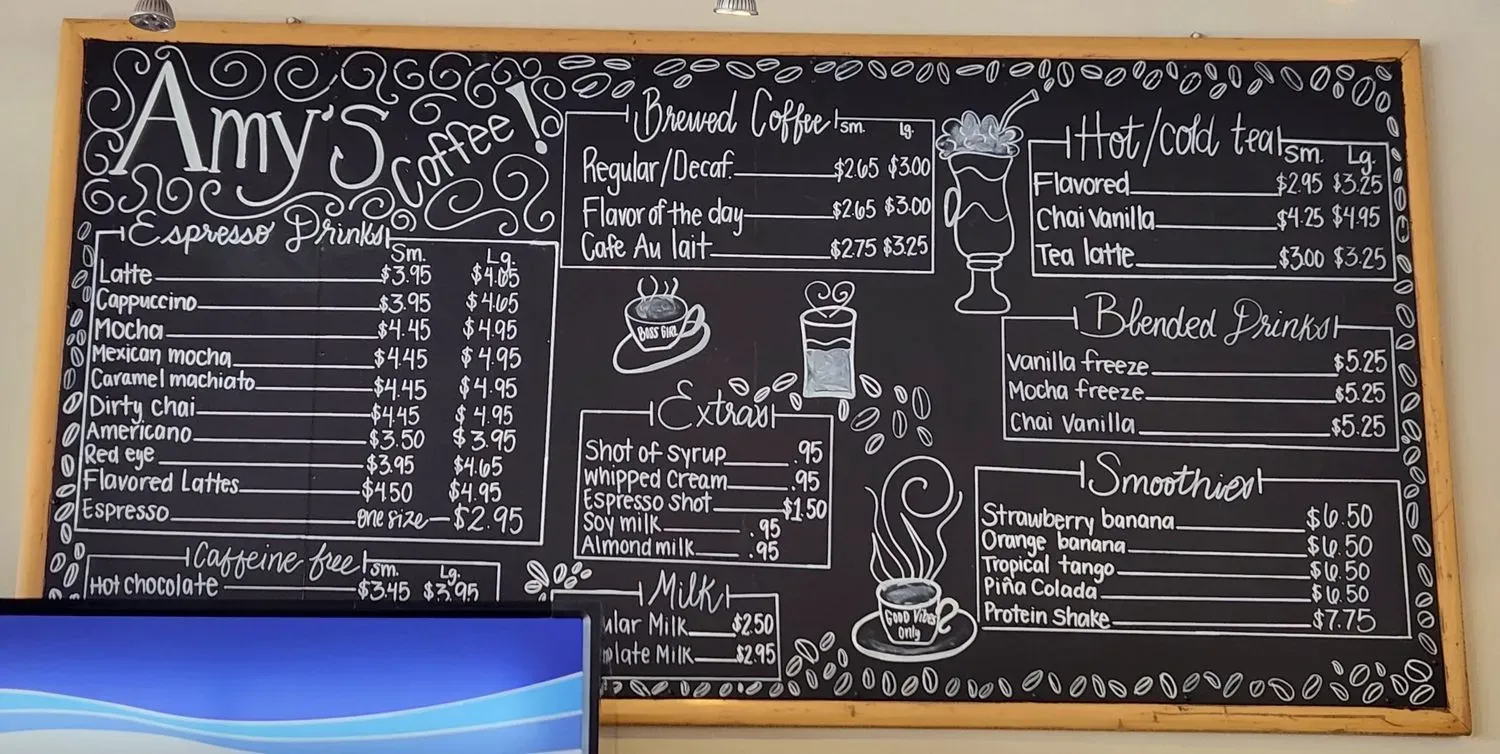 Amy's Coffee!
Espresso Drinks
Sm. Lg.
Latte $3.95 $4.65
Cappuccino $3.95 $4.65
Mocha $4.45 $4.95
Mexican mocha $4.45 $4.95
Caramel machiato $4.45 $4.95
Dirty chai $4.45 $4.95
Americano $3.50 $3.95
Red eye $3.95 $4.65
Flavored Lattes $4.50 $4.95
Espresso one size $2.95
Caffeine free sm. Lg.
Hot chocolate $3.45 $3.95
Brewed Coffee sm. lg.
Regular/Decaf. $2.65 $3.00
Flavor of the day $2.65 $3.00
Cafe Au lait $2.75 $3.25
BOSS GIRL
Extras
Shot of syrup .95
Whipped cream .95
Espresso shot $1.50
Soy milk .95
Almond milk .95
Milk
ular Milk $2.50
late Milk $2.95
Hot/cold tea Sm. Lg.
Flavored $2.95 $3.25
Chai Vanilla $4.25 $4.95
Tea latte $3.00 $3.25
Blended Drinks
Vanilla freeze $5.25
Mocha freeze $5.25
Chai Vanilla $5.25
Smoothies
Strawberry banana $6.50
Orange banana $6.50
Tropical tango $6.50
Piña Colada $6.50
Protein Shake $7.75
GOOD Vibes
Only